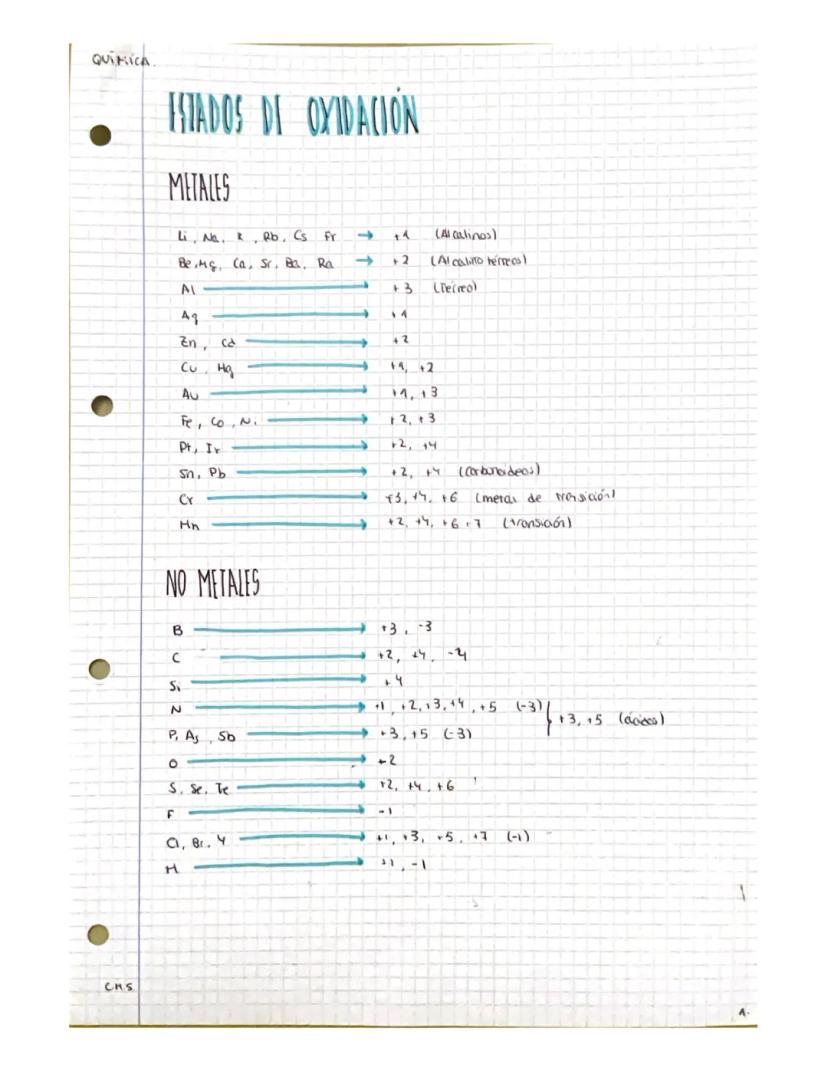 QUÍMICA.
ESTADOS DE OXIDACIÓN
METALES
Li, Na, K, Rb, Cs Fr → +1 (Alcalinos)
Be, Mg, Ca, Sr, Ba, Ra → +2 (Alcalino térreos)
Al → +3 (Térreo)
Ag → +1
Zn, Cd → +2
Cu, Hg → +1, +2
Au → +1, +3
Fe, Co, Ni → +2, +3
Pt, Ir → +2, +4
Sn, Pb → +2, +4 (Carbonoideos)
Cr → +3, +4, +6 (metal de transición)
Mn → +2, +4, +6, 7 (transición)
NO METALES
B → +3, -3
C → +2, +4, -4
Si → +4
N → +1, +2, +3, +4, +5 (-3) } +3, +5 (ácidos)
P, As, Sb → +3, +5 (-3)
O → -2
S, Se, Te → +2, +4, +6
F → -1
Cl, Br, Y → +1, +3, +5, +7 (-1)
H → +1, -1
CMS
1.